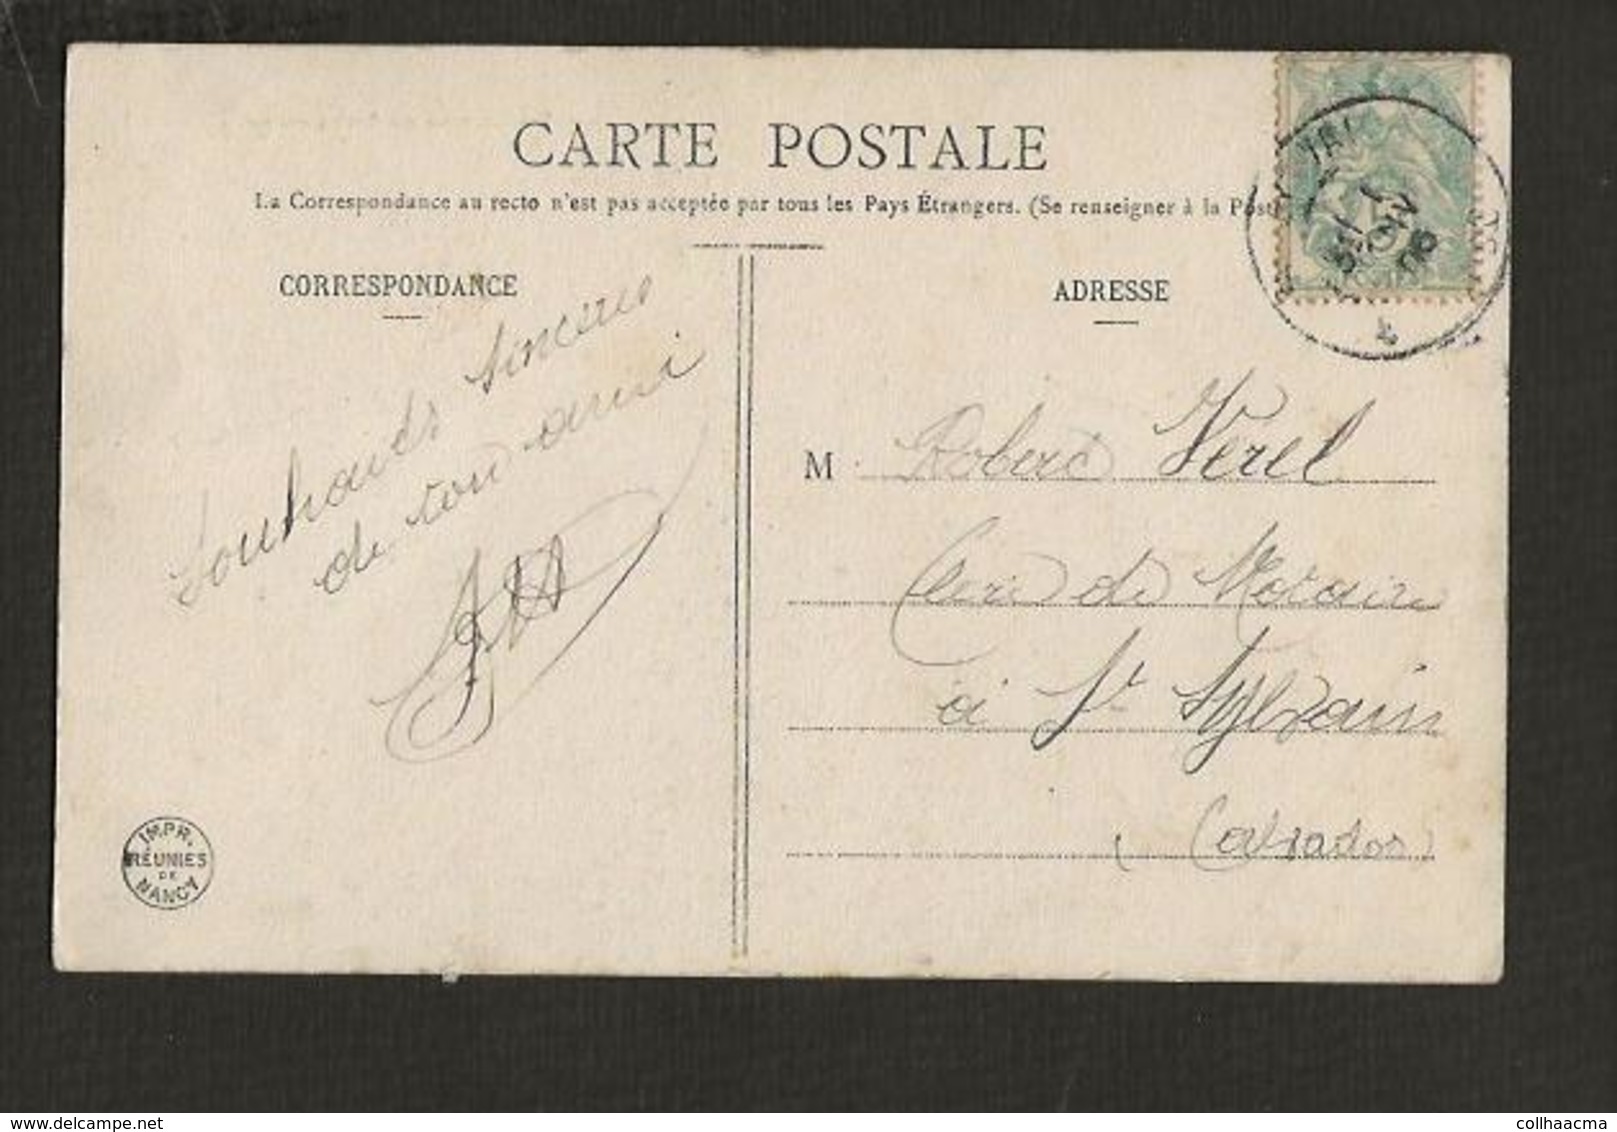 CARTE POSTALE
La Correspondance au recto n'est pas acceptée par tous les Pays Étrangers. (Se renseigner à la Poste
CORRESPONDANCE
Souhaits sincères
de ton ami
ADRESSE
M Robert Verel
Clerc de Notaire
à St Sylvain
(Calvados)
IMPR.
RÉUNIES
DE
NANCY
collhaacma